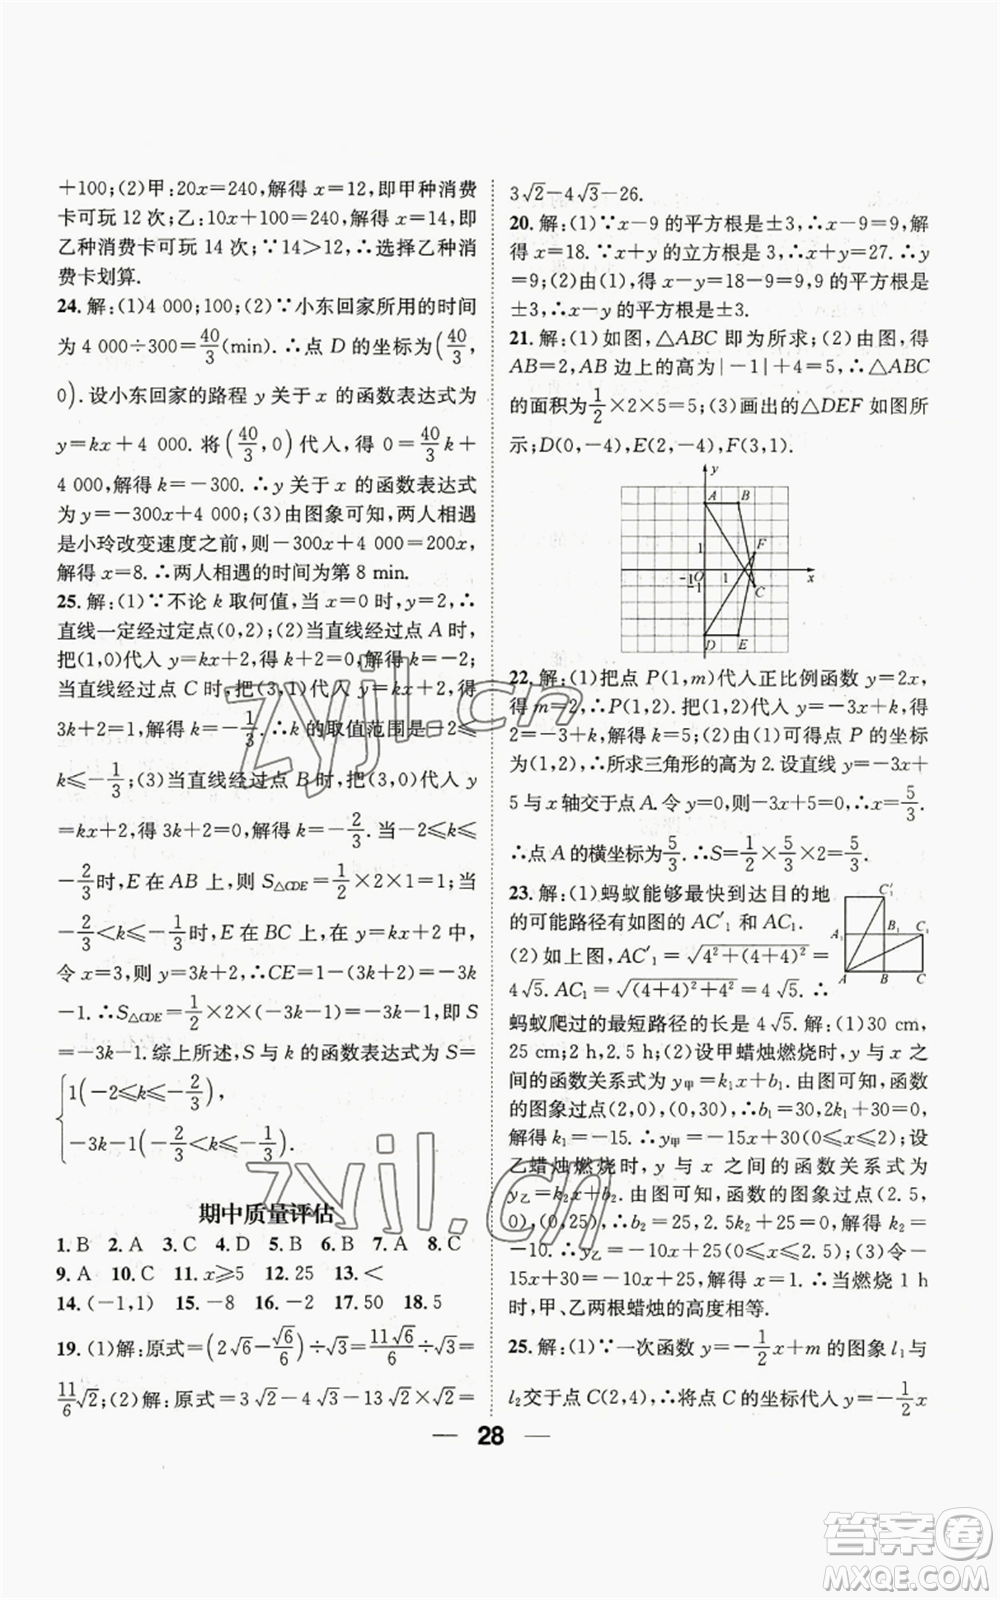 +100;(2)甲:20x=240,解得 x=12,即甲种消费
卡可玩 12 次;乙:10x+100=240,解得 x=14,即
乙种消费卡可玩 14 次;∵14>12,∴选择乙种消
费卡划算.
24.解:(1)4 000;100;(2)∵小东回家所用的时间
为 4 000÷300=40/3(min).∴点 D 的坐标为(40/3,
0).设小东回家的路程 y 关于 x 的函数表达式为
y=kx+4 000.将(40/3,0)代人,得 0=40/3k+
4 000,解得 k=-300.∴y 关于 x 的函数表达式
为 y=-300x+4 000;(3)由图象可知,两人相遇
是小玲改变速度之前,则-300x+4 000=200x,
解得 x=8.∴两人相遇的时间为第 8 min.
25.解:(1)∵不论 k 取何值,当 x=0 时,y=2,∴
直线一定经过定点(0,2);(2)当直线经过点 A 时,
把(1,0)代人 y=kx+2,得 k+2=0,解得 k=-2;
当直线经过点 C 时,把(3,1)代人 y=kx+2,得
3k+2=1,解得 k=-1/3.∴k 的取值范围是-2≤
k≤-1/3;(3)当直线经过点 B 时,把(3,0)代人 y
=kx+2,得 3k+2=0,解得 k=-2/3.当-2≤k≤
-2/3时,E 在 AB 上,则 S△CDE=1/2×2×1=1;当
-2/3<k≤-1/3时,E 在 BC 上,在 y=kx+2 中,
令 x=3,则 y=3k+2,∴CE=1-(3k+2)=-3k
-1.∴S△CDE=1/2×2×(-3k-1)=-3k-1,即 S
=-3k-1.综上所述,S 与 k 的函数表达式为 S=
{1(-2≤k≤-2/3),
-3k-1(-2/3<k≤-1/3).
期中质量评估
1.B 2.A 3.C 4.D 5.B 6.B 7.A 8.C
9.A 10.C 11.x≥5 12.25 13.<
14.(-1,1) 15.-8 16.-2 17.50 18.5
19.(1)解:原式=(2√6-√6/6)÷√3=11√6/6÷√3=
11/6√2;(2)解:原式=3√2-4√3-13√2×√2=
3√2-4√3-26.
20.解:(1)∵x-9 的平方根是±3,∴x-9=9,解
得 x=18.∵x+y 的立方根是 3,∴x+y=27.∴y
=9;(2)由(1),得 x-y=18-9=9,9 的平方根是
±3,∴x-y 的平方根是±3.
21.解:(1)如图,△ABC 即为所求;(2)由图,得
AB=2,AB 边上的高为|-1|+4=5,∴△ABC
的面积为1/2×2×5=5;(3)画出的△DEF 如图所
示;D(0,-4),E(2,-4),F(3,1).
y
A B
1
F
-1 O 1 x
-1
C
D E
22.解:(1)把点 P(1,m)代人正比例函数 y=2x,
得 m=2,∴P(1,2).把P(1,2)代入 y=-3x+k,得
2=-3+k,解得 k=5;(2)由(1)可得点 P 的坐标
为(1,2),∴所求三角形的高为 2.设直线 y=-3x+
5 与 x 轴交于点 A.令 y=0,则-3x+5=0,∴x=5/3.
∴点 A 的横坐标为5/3.∴S=1/2×5/3×2=5/3.
23.解:(1)蚂蚁能够最快到达目的地
的可能路径有如图的 AC′₁ 和 AC₁.
(2)如上图,AC′₁=√(4²+(4+4)²)=
4√5.AC₁=√((4+4)²+4²)=4√5.∴
C′₁
A₁ B₁ C₁
A B C
蚂蚁爬过的最短路径的长是 4√5.解:(1)30 cm,
25 cm;2 h,2.5 h;(2)设甲蜡烛燃烧时,y 与 x 之
间的函数关系式为 y甲=k₁x+b₁.由图可知,函数
的图象过点(2,0),(0,30),∴b₁=30,2k₁+30=0,
解得 k₁=-15.∴y甲=-15x+30(0≤x≤2);设
乙蜡烛燃烧时,y 与 x 之间的函数关系式为
y乙=k₂x+b₂.由图可知,函数的图象过点(2.5,
0),(0,25),∴b₂=25,2.5k₂+25=0,解得 k₂=
-10.∴y乙=-10x+25(0≤x≤2.5);(3)令-
15x+30=-10x+25,解得 x=1.∴当燃烧 1 h
时,甲、乙两根蜡烛的高度相等.
25.解:(1)∵一次函数 y=-1/2x+m 的图象 l₁与
l₂交于点 C(2,4),∴将点 C 的坐标代人 y=-1/2x
— 28 —
zyjl.cn
zyjl.cn
答案圈
MXQE.COM